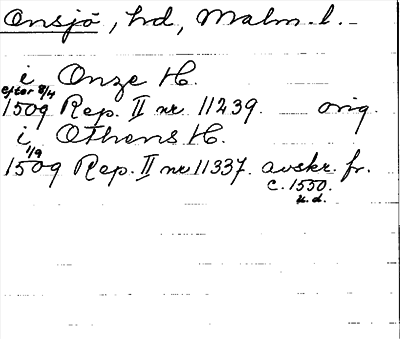 Onsjö, hd, Malm. l. –
i Onze H.
efter 8/4
1509 Rep. II nr 11239. orig.
i Othens H.
1/9
1509 Rep. II nr 11337. avskr. fr.
c. 1550.
u. d.